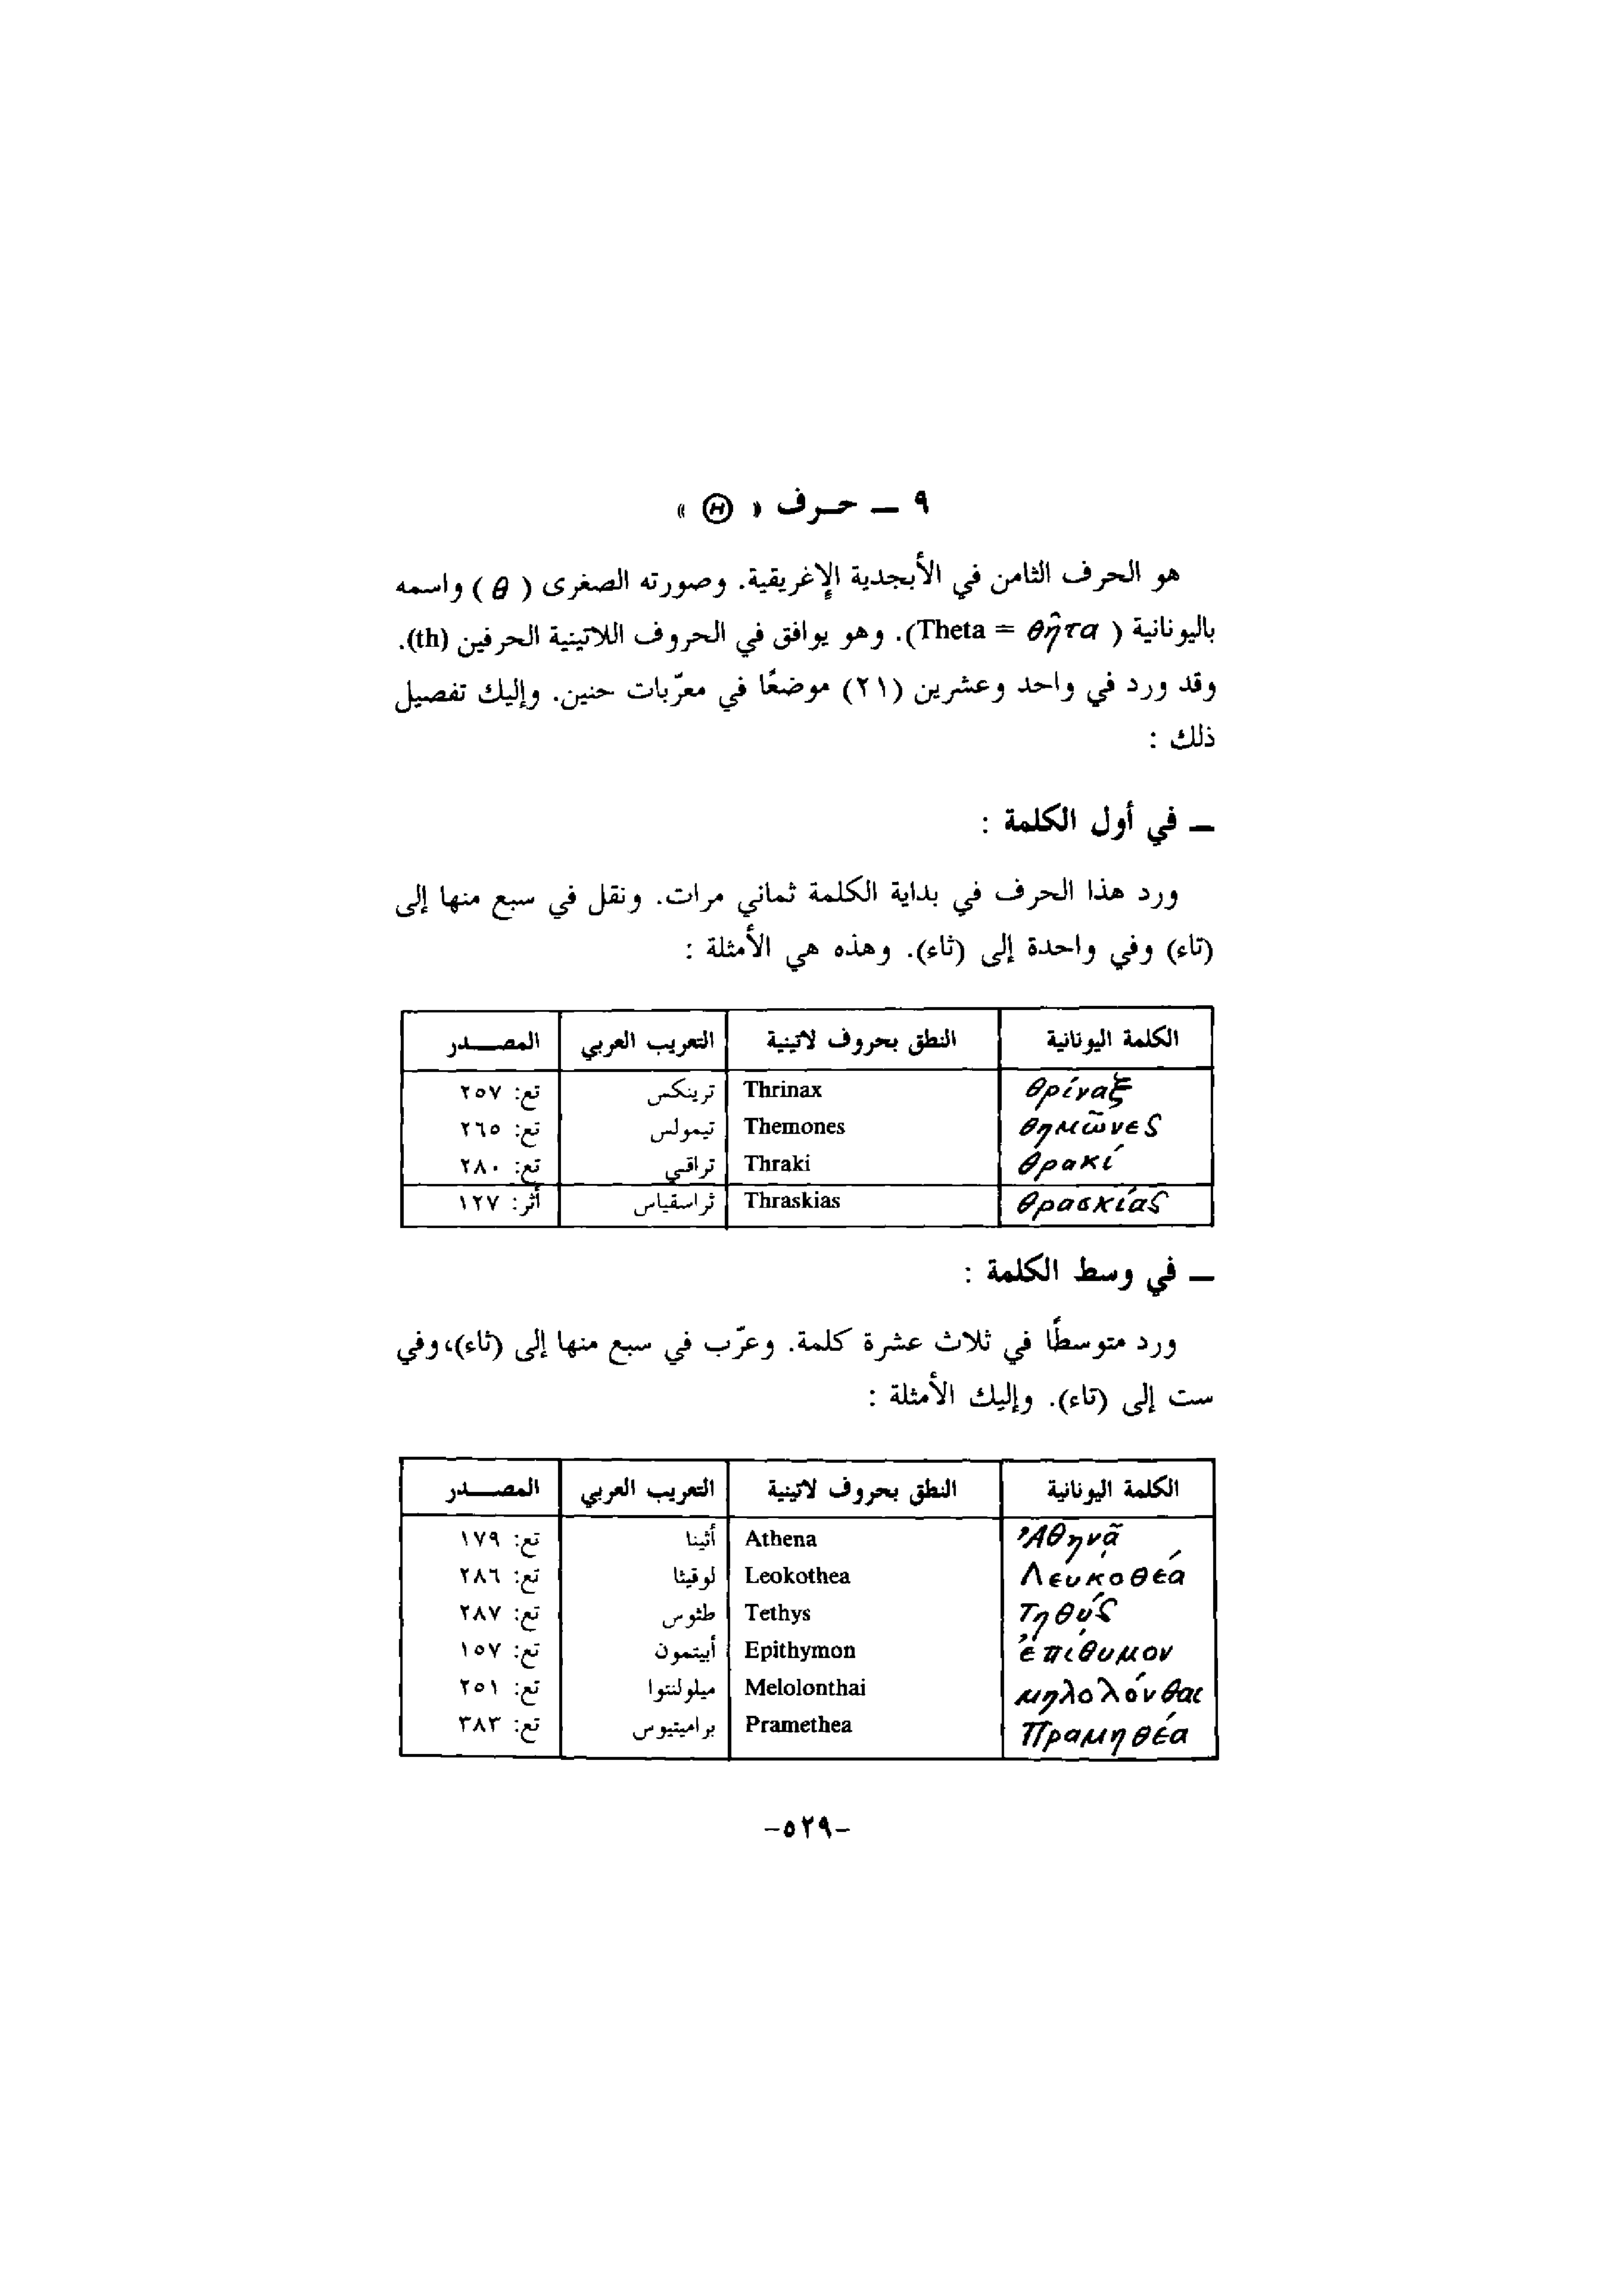 ٩ – حرف « Θ »
هو الحرف الثامن في الأبجدية الإغريقية. وصورته الصغرى ( θ ) واسمه
باليونانية ( Theta = θῆτα). وهو يوافق في الحروف اللاتينية الحرفين (th).
وقد ورد في واحد وعشرين (٢١) موضعًا في معرّبات حنين. وإليك تفصيل
ذلك :
– في أول الكلمة :
ورد هذا الحرف في بداية الكلمة ثماني مرات. ونقل في سبع منها إلى
(تاء) وفي واحدة إلى (ثاء). وهذه هي الأمثلة :
الكلمة اليونانية النطق بحروف لاتينية التعريب العربي المصــدر
θρίναξ Thrinax ترينكس تع: ٢٥٧
θημῶνες Themones تيمولس تع: ٢٦٥
θρακί Thraki تراقي تع: ٢٨٠
θρασκίας Thraskias ثراسقياس أثر: ١٢٧
– في وسط الكلمة :
ورد متوسطًا في ثلاث عشرة كلمة. وعرّب في سبع منها إلى (ثاء)، وفي
ست إلى (تاء). وإليك الأمثلة :
الكلمة اليونانية النطق بحروف لاتينية التعريب العربي المصــدر
Ἀθηνᾶ Athena أثينا تع: ١٧٩
Λευκοθέα Leokothea لوقيثا تع: ٢٨٦
Τηθύς Tethys طثوس تع: ٢٨٧
ἐπίθυμον Epithymon أبيتمون تع: ١٥٧
μηλολόνθαι Melolonthai ميلولنتوا تع: ٢٥١
Πραμηθέα Pramethea براميتيوس تع: ٣٨٣
-٥٢٩-